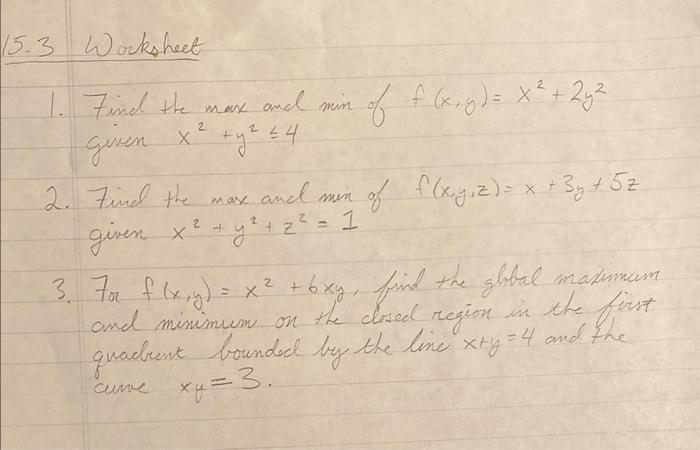 15.3 Worksheet
1. Find the max and min of f(x,y) = x² + 2y²
given x² + y² ≤ 4
2. Find the max and min of f(x,y,z) = x + 3y + 5z
given x² + y² + z² = 1
3. For f(x,y) = x² + 6xy, find the global maximum
and minimum on the closed region in the first
quadrent bounded by the line x+y=4 and the
curve xy = 3.